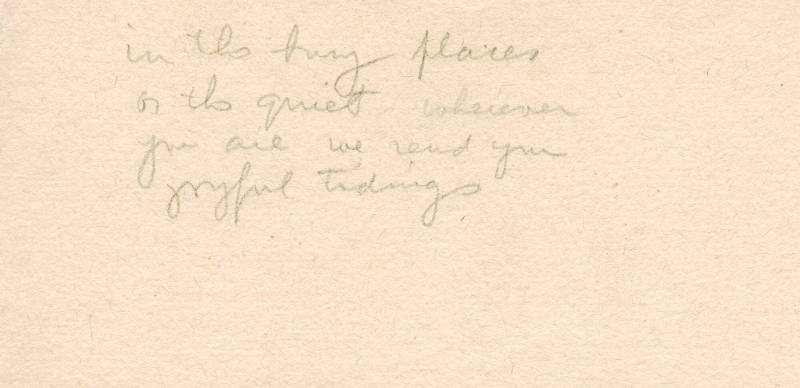 in the busy places
or the quiet wherever
you are we send you
joyful tidings